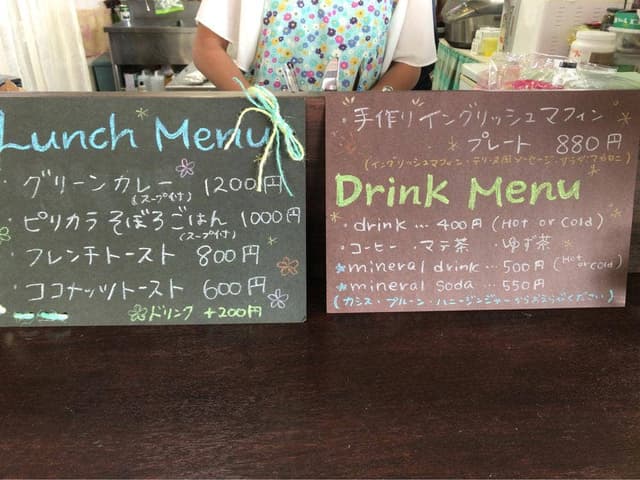 Lunch Menu
・グリーンカレー 1200円
(スープ付)
・ピリカラそぼろごはん 1000円
(スープ付)
・フレンチトースト 800円
・ココナッツトースト 600円
ドリンク +200円
・手作りイングリッシュマフィン
プレート 880円
(イングリッシュマフィン・
ソーセージ・サラダ・マカロニ)
Drink Menu
・drink … 400円 (Hot or Cold)
・コーヒー・マテ茶・ゆず茶
*mineral drink … 500円 (Hot or Cold)
*mineral soda … 550円
(カシス・プルーン・ハニージンジャーからおえらびください)